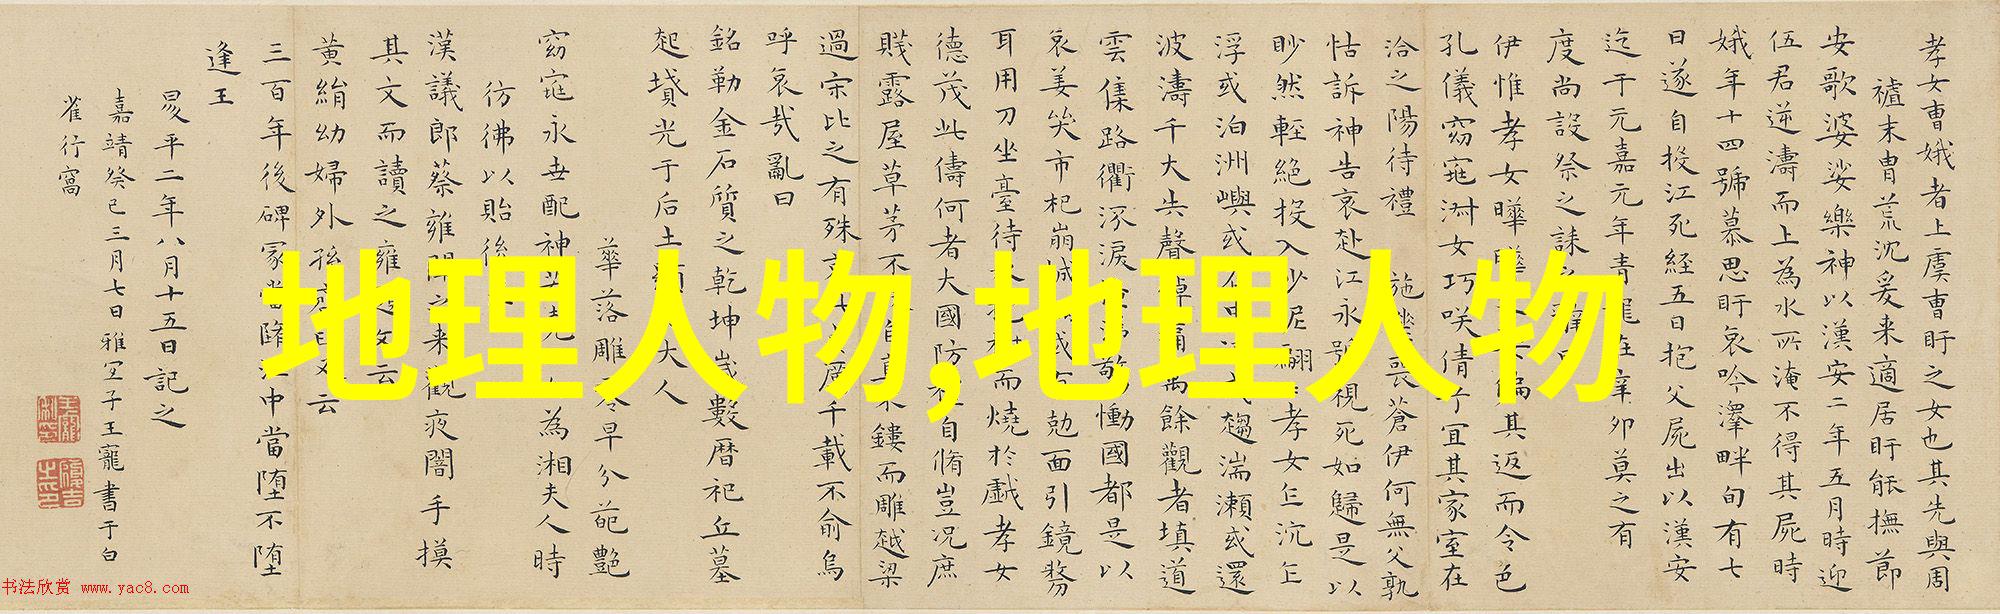 地理人物,地理人物
孝女曹娥者上虞曹盱之女也其先與周
禮末胄荒沈爰来適居盱能撫節
安歌婆娑樂神以漢安二年五月時迎
伍君逆濤而上為水所淹不得其屍時
娥年十四號慕思盱哀吟澤畔旬有七
日遂自投江死経五日抱父屍出以漢安
迄于元嘉元年青龍在辛卯莫之有
度尚設祭之誄之辭曰
伊惟孝女曄曄之偏其返而令色
孔儀窈窕淑女巧咲倩兮宜其家室在
洽之陽待禮施嗟喪蒼伊何無父孰
怙訴神告哀赴江永號視死如歸是以
眇然輕絕投入沙泥翩孝女乍沉乍
浮或泊洲嶼或在中或趨湍瀨或還
波濤千夫失聲悼痛萬餘觀者填道
雲集路衢流淚涕驚慟國都是以
哀姜哭市杞崩城或有剋面引鏡剺
耳用刀坐臺待而燒於戲孝女
德茂此儔何者大國防禮自脩豈況庶
賤露屋草茅不自直不鏤而雕越梁
過宋比之有殊厲千載不渝烏
呼哀哉亂曰
銘勒金石質之乾坤歲數曆祀丘墓
起墳光于后土顯大人
華落雕零早分葩艷
窈窕永世配神二為湘夫人時
彷彿以貽後
漢議郎蔡雍聞之来觀夜闇手摸
其文而讀之雍題文云
黃絹幼婦外孫又云
三百年後碑冢當墮江中當墮不墮
逢王
昇平二年八月十五日記之
嘉靖癸巳三月七日雅宜子王寵書于白
雀行窩
书法欣赏 www.yac8.com